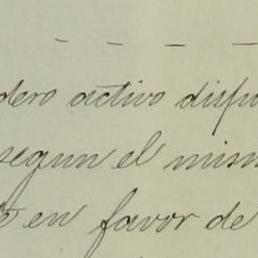 dero activo dispu
segun el mism
en favor de